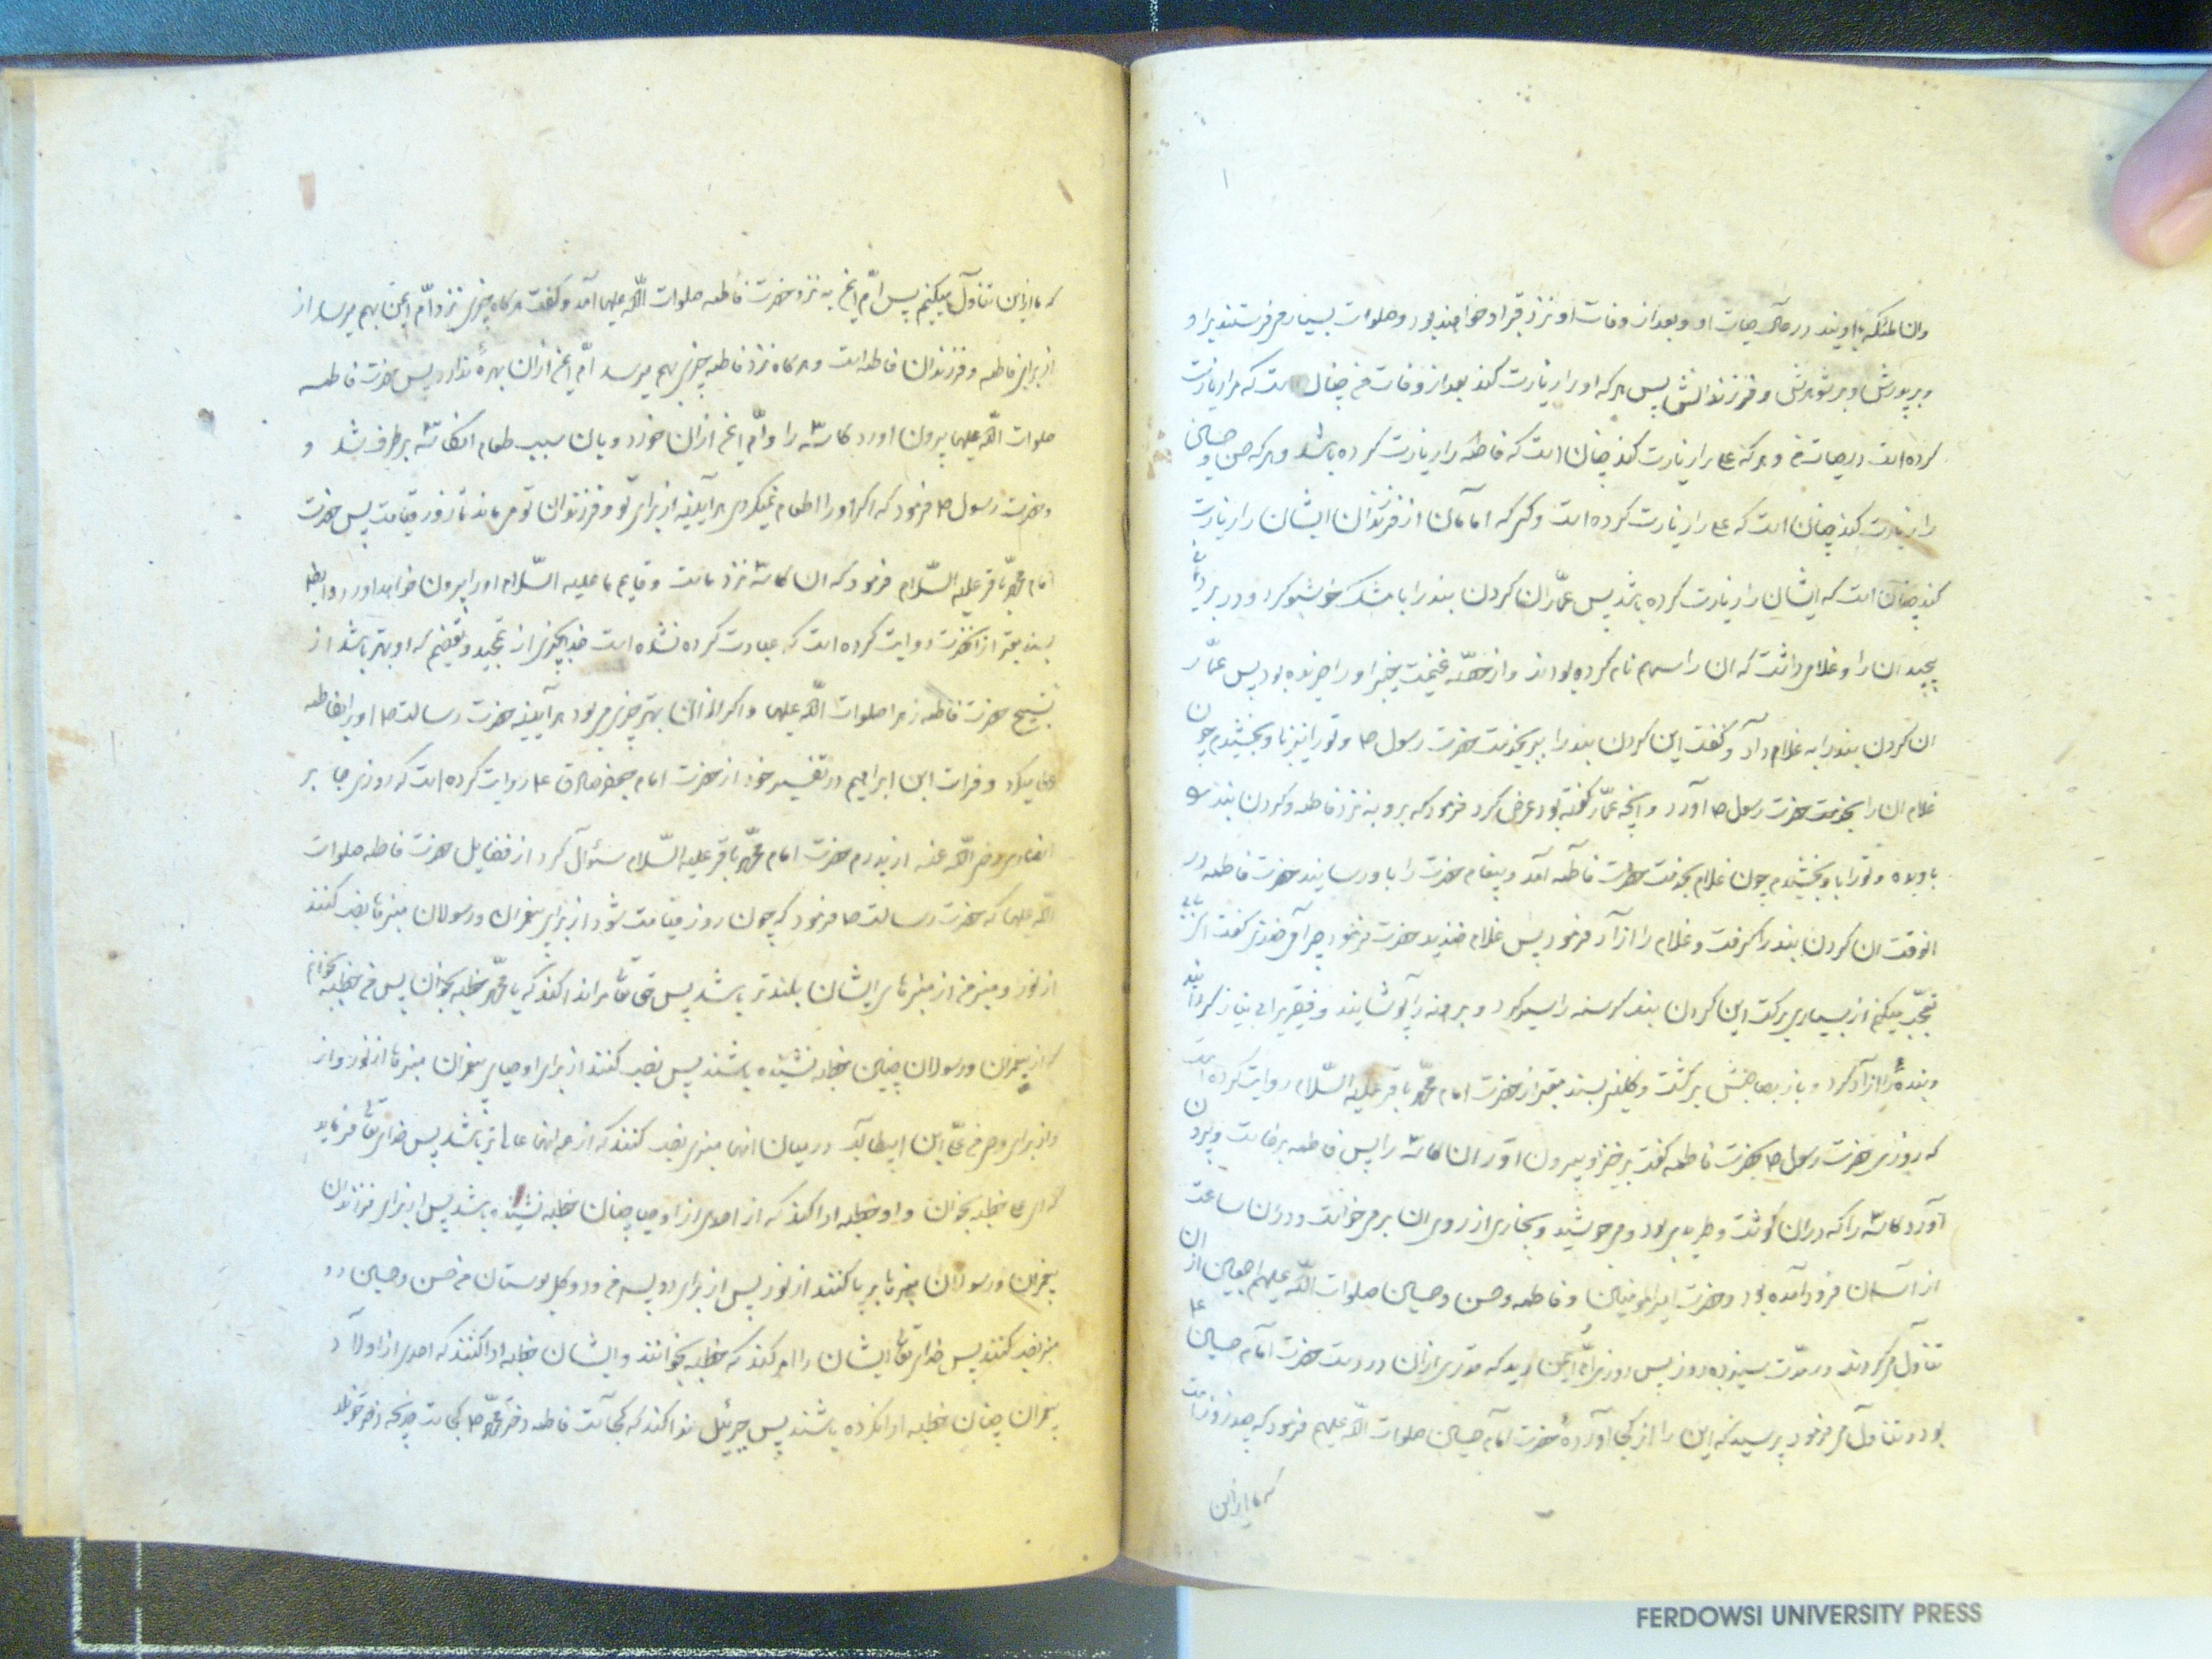 وان ملئکه با اویند در حال حیات او و بعد از وفات او نزد قبر او خواهند بود و صلوات بسیار میفرستند بر او
و بر پدرش و بر شوهرش و فرزندانش پس هر که او را زیارت کند بعد از وفات من چنان است که مرا زیارت
کرده است در حیات من و هر که علی را زیارت کند چنان است که فاطمه را زیارت کرده باشد و هر که حسن و حسین
را زیارت کند چنان است که علی را زیارت کرده است و هر که امامان از فرزندان ایشان را زیارت
کند چنان است که ایشان را زیارت کرده باشد پس عمّار ان کردن بند را با مشک خوشبو کرد و در برد یمانی
پیچید ان را و غلامی داشت که ان را سهم نام کرده بودند و از حصّه غنیمت خیبر او را خریده بود پس عمّار
ان کردن بند را به غلام داد و گفت این کردن بند را ببر بخدمت حضرت رسول ص و تو را نیز باو بخشیدم چون
غلام ان را بخدمت حضرت رسول ص آورد و آنچه عمّار گفته بود عرض کرد فرمود که برو به نزد فاطمه و کردن بند را
باو بده و تو را باو بخشیدم چون غلام بخدمت حضرت فاطمه آمد و پیغام حضرت را باو رسانید حضرت فاطمه در
انوقت ان کردن بند را گرفت و غلام را ازاد فرمود پس غلام خندید حضرت فرمود چرا میخندی گفت از
تعجّب میکنم از بسیاری برکت این کردن بند گرسنه را سیر کرد و برهنه را پوشانید و فقیر را بی نیاز گردانید
و بنده را ازاد کرد و باز بصاحبش برگشت و کلینی بسند معتبر از حضرت امام محمّد باقر علیه السّلام روایت کرده است
که روزی حضرت رسول ص بحضرت فاطمه گفت برخیز و بیرون آور ان کاسه را پس فاطمه برخاست و بیرون
آورد کاسه را که در ان گوشت و طرید بود و میجوشید و بخاری از روی ان برمیخواست و در ان ساعت
از آسمان فرود آمده بود و حضرت امیر المؤمنین و فاطمه و حسن و حسین صلوات اللّه علیهم اجمعین از ان
تناول میکردند در مدّت سیزده روز پس روزی امّ ایمن دید که قدری از ان در دست حضرت امام حسین ع
بود و تناول میفرمود پرسید که این را از کجا آورده حضرت امام حسین صلوات اللّه علیهم فرمود که چند روز است
که ما از این
که ما از این تناول میکنیم پس امّ ایمن به نزد حضرت فاطمه صلوات اللّه علیها آمد و گفت هر گاه چیزی نزد امّ ایمن بهم میرسد از
از برای فاطمه و فرزندان فاطمه است و هر گاه نزد فاطمه چیزی بهم میرسد امّ ایمن از ان بهره ندارد پس حضرت فاطمه
صلوات اللّه علیها بیرون آورد کاسه را و امّ ایمن از ان خورد و بان سبب طعام انکاسه برطرف شد و
و حضرت رسول ص فرمود که اگر او را اطعام نمیکردی هر آینه از برای تو و فرزندان تو میماند تا روز قیامت پس حضرت
امام محمّد باقر علیه السّلام فرمود که ان کاسه نزد ماست و قایم ما علیه السّلام او را بیرون خواهد آورد و ایضا
بسند معتبر از آنحضرت روایت کرده است که عبادت کرده نشده است خدا بچیزی از تمجید و تعظیم که او بهتر باشد از
تسبیح حضرت فاطمه زهرا صلوات اللّه علیها و اگر از ان بهتر چیزی میبود هر آینه حضرت رسالت ص او را بفاطمه
عطا میکرد و فرات ابن ابراهیم در تفسیر خود از حضرت امام جعفر صادق ع روایت کرده است که روزی جابر
انصاری رضی اللّه عنه از پدرم حضرت امام محمّد باقر علیه السّلام سئوال کرد از فضایل حضرت فاطمه صلوات
اللّه علیها که حضرت رسالت ص فرمود که چون روز قیامت شود از برای پیغمبران و رسولان منبرها نصب کنند
از نور و منبر من از منبرهای ایشان بلندتر باشد پس حق تعالی مرا ندا کند که یا محمّد خطبه بخوان پس من خطبه بخوانم
که از پیغمبران و رسولان چنین خطبه نشنیده باشند پس نصب کنند از برای اوصیای پیغمبران منبرها از نور و از
و از برای وصی من علی ابن ابیطالب در میان انها منبری نصب کنند که از همه انها عالی تر باشد پس خدای تعالی فرماید
که ای علی خطبه بخوان و او خطبه ادا کند که از احدی از اوصیا چنان خطبه نشنیده باشند پس از برای فرزندان
پیغمبران و رسولان منبرها بر پا کنند از نور پس از برای دو پسر من و دو گل بوستان من حسن و حسین دو
منبر نصب کنند پس خدای تعالی ایشان را امر کند که خطبه بخوانند و ایشان خطبه ادا کنند که احدی از اولاد
پیغمبران چنان خطبه ادا نکرده باشند پس جبرئیل ندا کند که کجاست فاطمه دختر محمّد ص کجاست خدیجه دختر خویلد
FERDOWSI UNIVERSITY PRESS